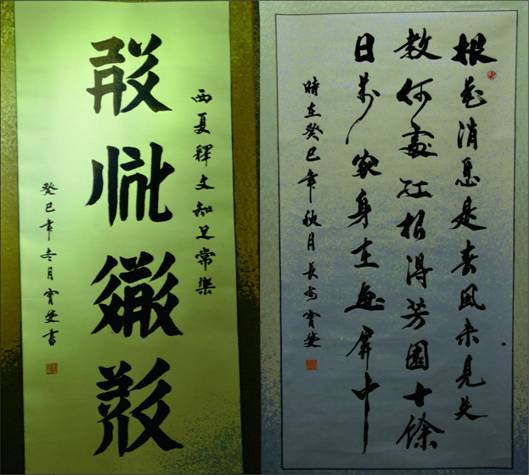 西夏釋文知足常樂
癸巳年冬月
報花消息是春風未見先
教何處紅想得芳園十餘
日萬家身在畫屏中
時在癸巳年秋月長安